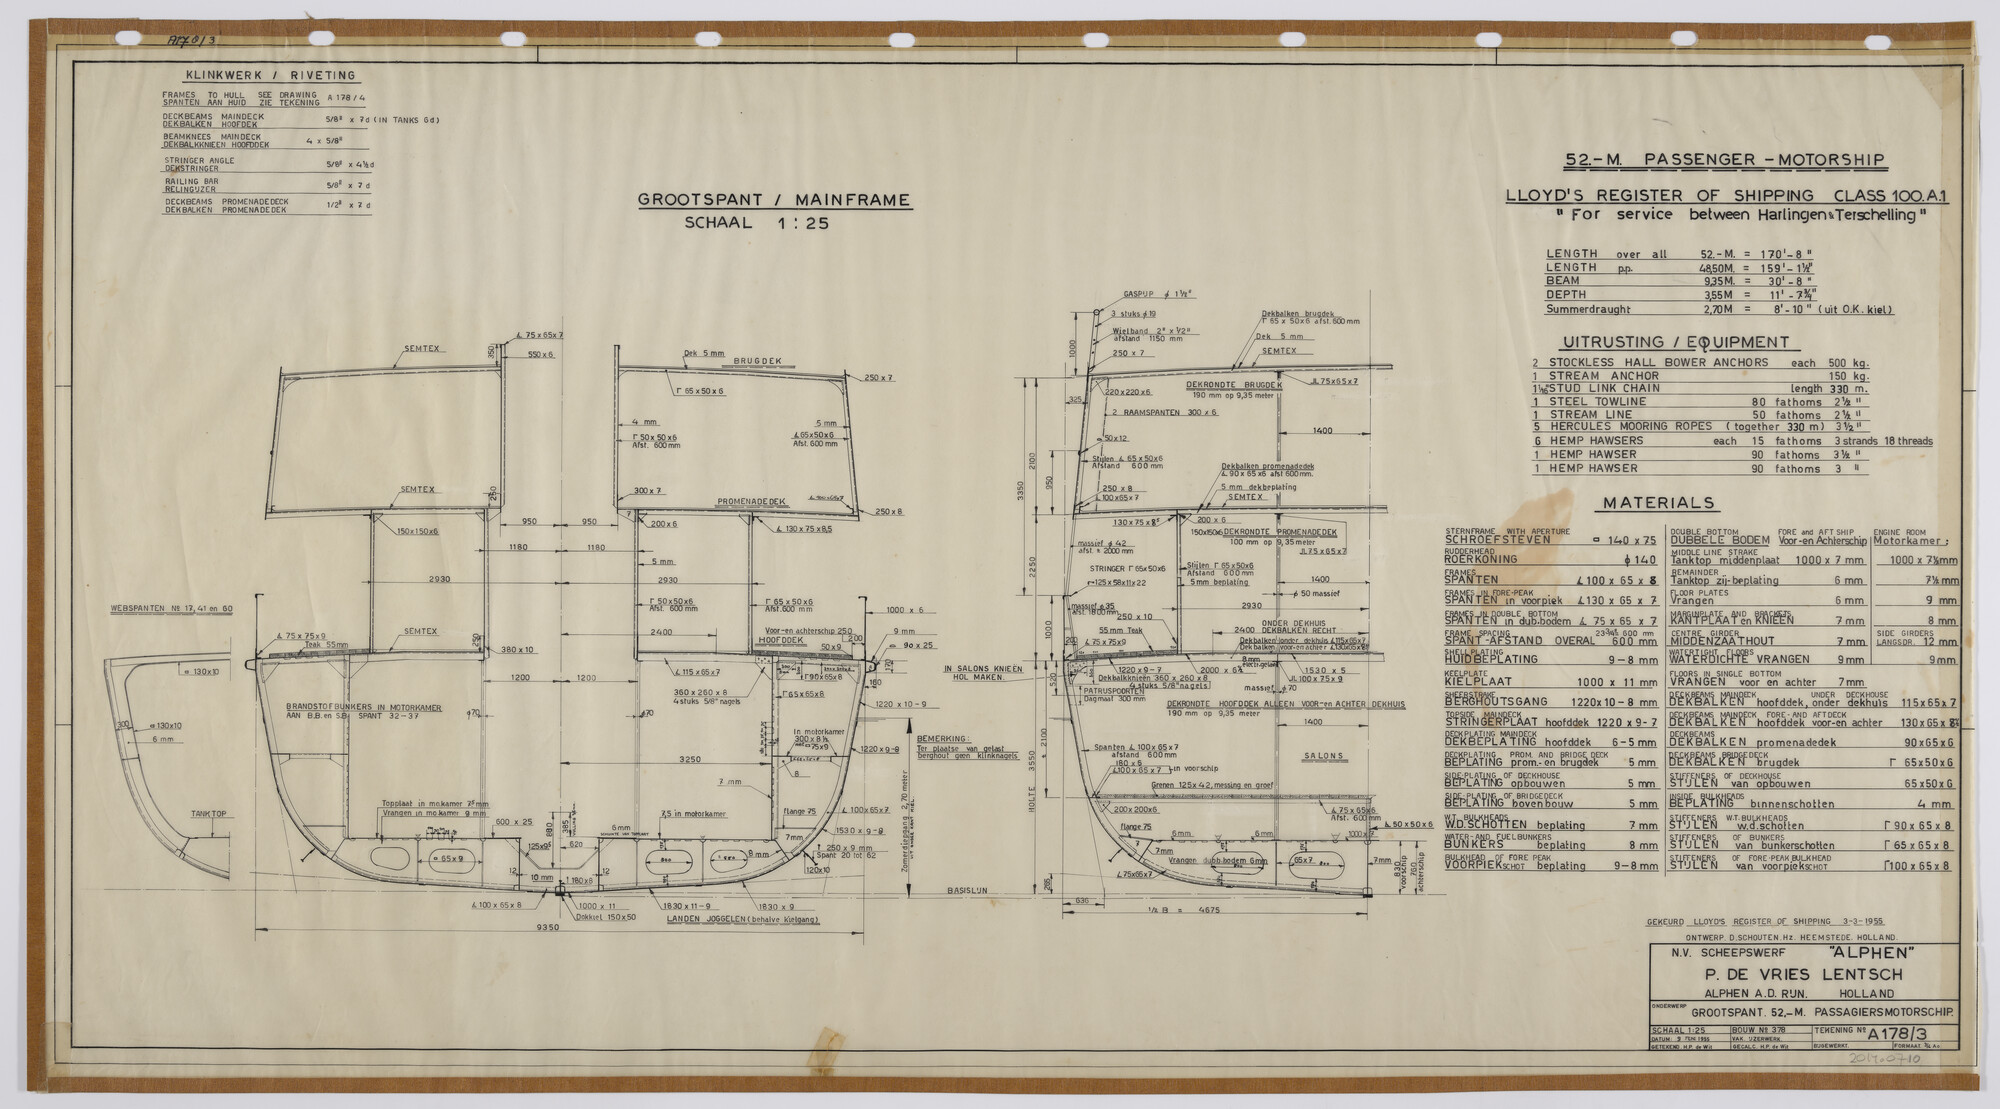 A178/3
KLINKWERK / RIVETING
FRAMES TO HULL SEE DRAWING A 178/4
SPANTEN AAN HUID ZIE TEKENING
DECKBEAMS MAINDECK 5/8" x 7d (IN TANKS 6d)
DEKBALKEN HOOFDEK
BEAMKNEES MAINDECK 4 x 5/8"
DEKBALKKNIEEN HOOFDDEK
STRINGER ANGLE 5/8" x 4½d
DEKSTRINGER
RAILING BAR 5/8" x 7d
RELINGIJZER
DECKBEAMS PROMENADEDECK 1/2" x 7d
DEKBALKEN PROMENADEDEK
GROOTSPANT / MAINFRAME
SCHAAL 1:25
52.-M. PASSENGER-MOTORSHIP
LLOYD'S REGISTER OF SHIPPING CLASS 100.A.1
"For service between Harlingen & Terschelling"
LENGTH over all 52.-M. = 170'-8"
LENGTH p.p. 48,50M. = 159'-1½"
BEAM 9,35M. = 30'-8"
DEPTH 3,55M = 11'-7¾"
Summerdraught 2,70M = 8'-10" (uit O.K. kiel)
UITRUSTING / EQUIPMENT
2 STOCKLESS HALL BOWER ANCHORS each 500 kg.
1 STREAM ANCHOR 150 kg.
STUD LINK CHAIN length 330 m.
1 STEEL TOWLINE 80 fathoms 2½"
1 STREAM LINE 50 fathoms 2½"
5 HERCULES MOORING ROPES (together 330 m) 3½"
6 HEMP HAWSERS each 15 fathoms 3 strands 18 threads
1 HEMP HAWSER 90 fathoms 3½"
1 HEMP HAWSER 90 fathoms 3"
MATERIALS
STERNFRAME WITH APERTURE
SCHROEFSTEVEN 140 x 75
RUDDERHEAD
ROERKONING ϕ 140
FRAMES
SPANTEN ∠ 100 x 65 x 8
FRAMES IN FORE-PEAK
SPANTEN in voorpiek ∠ 130 x 65 x 7
FRAMES IN DOUBLE BOTTOM
SPANTEN in dub.bodem ∠ 75 x 65 x 7
FRAME SPACING
SPANT-AFSTAND OVERAL 600 mm
SHELLPLATING
HUIDBEPLATING 9-8 mm
KEELPLATE
KIELPLAAT 1000 x 11 mm
SHEERSTRAKE
BERGHOUTSGANG 1220x10-8 mm
TOPSIDE MAINDECK
STRINGERPLAAT hoofddek 1220 x 9-7
DECKPLATING MAINDECK
DEKBEPLATING hoofddek 6-5 mm
DECKPLATING PROM. AND BRIDGE DECK
BEPLATING prom.- en brugdek 5 mm
SIDE-PLATING OF DECKHOUSE
BEPLATING opbouwen 5 mm
SIDE-PLATING OF BRIDGEDECK
BEPLATING bovenbouw 5 mm
W.T. BULKHEADS
W.D. SCHOTTEN beplating 7 mm
WATER-AND FUELBUNKERS
BUNKERS beplating 8 mm
BULKHEAD OF FORE PEAK
VOORPIEKSCHOT beplating 9-8 mm
DOUBLE BOTTOM FORE and AFT SHIP ENGINE ROOM
DUBBELE BODEM Voor-en Achterschip Motorkamer;
MIDDLE LINE STRAKE
Tanktop middenplaat 1000 x 7 mm 1000 x 7½mm
REMAINDER
Tanktop zij-beplating 6 mm 7½ mm
FLOOR PLATES
Vrangen 6 mm 9 mm
MARGINPLATE AND BRACKETS
KANTPLAAT en KNIEËN 7 mm 8 mm
CENTRE GIRDER SIDE GIRDERS
MIDDENZAATHOUT 7 mm LANGSDR. 12 mm
WATERTIGHT FLOORS
WATERDICHTE VRANGEN 9 mm 9 mm
FLOORS IN SINGLE BOTTOM
VRANGEN voor en achter 7 mm
DECKBEAMS MAINDECK UNDER DECKHOUSE
DEKBALKEN hoofddek, onder dekhuis 115x65x7
DECKBEAMS MAINDECK FORE- AND AFTDECK
DEKBALKEN hoofddek voor-en achter 130x65x8½
DECKBEAMS
DEKBALKEN promenadedek 90x65x6
DECKBEAMS BRIDGEDECK
DEKBALKEN brugdek Γ 65x50x6
STIFFENERS OF DECKHOUSE
STIJLEN van opbouwen 65x50x6
INSIDE BULKHEADS
BEPLATING binnenschotten 4 mm
STIFFENERS W.T. BULKHEADS
STIJLEN w.d. schotten Γ 90 x 65 x 8
STIFFENERS OF BUNKERS
STIJLEN van bunkerschotten Γ 65 x 65 x 8
STIFFENERS OF FORE-PEAK BULKHEAD
STIJLEN van voorpiekschot Γ 100 x 65 x 8
SEMTEX
∠ 75 x 65 x 7
550 x 6
350
Dek 5 mm
BRUGDEK
Γ 65 x 50 x 6
250 x 7
4 mm
Γ 50 x 50 x 6
Afst. 600 mm
5 mm
∠ 65x50x6
Afst. 600 mm
SEMTEX
250
300 x 7
PROMENADEDEK
250 x 8
150x150x6
950
950
200 x 6
∠ 130 x 75 x 8,5
1180
1180
5 mm
2930
2930
WEBSPANTEN № 17, 41 en 60
Γ 50x50x6
Afst. 600 mm
Γ 65 x 50 x 6
Afst. 600 mm
1000 x 6
∠ 75 x 75 x 9
Teak 55mm
SEMTEX
250
380 x 10
2400
Voor-en achterschip 250
HOOFDDEK
50x9
200
9 mm
90 x 25
170
160
130x10
1200
1200
∠ 115 x 65 x 7
Γ 90x65x8
360 x 260 x 8
4 stuks 5/8" nagels
Γ 65x65x8
1220 x 10-9
BRANDSTOFBUNKERS IN MOTORKAMER
AAN B.B. en S.B. SPANT 32-37
ϕ70
ϕ70
300
130x10
6 mm
In motorkamer
300 x 8½
75x9
BEMERKING:
Ter plaatse van gelast
berghout geen klinknagels
1220 x 9-8
3250
8
7 mm
TANKTOP
Topplaat in mo.kamer 7,5 mm
Vrangen in mo.kamer 9 mm
7,5 in motorkamer
flange 75
∠ 100x65x7
600 x 25
830
385
620
6 mm
7mm
1530 x 9-8
250 x 9 mm
Spant 20 tot 62
120x10
65x9
12
10 mm
180x8
12
8 mm
Zomerdiepgang 2,70 meter
∠ 100 x 65 x 8
1000 x 11
Dokkiel 150x50
1830 x 11-9
1830 x 9
LANDEN JOGGELEN (behalve Kielgang)
9350
BASISLIJN
GASPIJP ϕ 1½"
3 stuks ϕ19
Wielband 2" x ½"
afstand 1150 mm
250 x 7
1000
Dekbalken brugdek
Γ 65 x 50x6 afst. 600 mm
Dek 5 mm
SEMTEX
220x220x6
325
DEKRONDTE BRUGDEK
190 mm op 9,35 meter
JL 75x65x7
2 RAAMSPANTEN 300 x 6
1400
50x12
Stijlen ∠ 65 x50x6
Afstand 600 mm
Dekbalken promenadedek
∠ 90 x 65 x6 afst 600 mm.
5 mm dekbeplating
SEMTEX
250 x 8
∠ 100x65x7
3350
2100
950
130 x 75 x 8⁵
200 x 6
150x150x6
DEKRONDTE PROMENADEDEK
100 mm op 9,35 meter
JL 75x65x7
massief ϕ 42
afst. ± 2000 mm
STRINGER Γ 65x50x6
Stijlen Γ 65x50x6
Afstand 600 mm
5 mm beplating
125x58x11x22
1400
ϕ 50 massief
2250
massief ϕ 35
afst. 1800 mm
250 x 10
2930
55 mm Teak
∠ 75 x75x9
ONDER DEKHUIS
2400 DEKBALKEN RECHT
Dekbalken onder dekhuis ∠115x65x7
Dekbalken voor-en achter ∠130x65x8½
1000
200
IN SALONS KNIEËN
HOL MAKEN.
520
1220 x 9-7
2000 x 6½
8 mm
1530 x 5
JL 100 x 75 x 9
Dekbalkknieën 360 x 260 x 8
4 stuks 5/8" nagels
massief ϕ 70
PATRIJSPOORTEN
Dagmaat 300 mm
DEKRONDTE HOOFDDEK ALLEEN VOOR-EN ACHTER DEKHUIS
190 mm op 9.35 meter
1400
Spanten ∠ 100x65x7
afstand 600 mm
180 x 6
∠100x65 x7
in voorschip
SALONS
Grenen 125x42, messing en groef
200x200x6
HOLTE 3550
2100
∠ 75 x 65x6
Afst. 600 m
∠ 50 x 50 x 6
flange 75
6 mm
6 mm
7mm
Vrangen dubb.bodem 6mm
65x7
7mm
∠75x65x7
830
voorschip
750
achterschip
265
636
½ B = 4675
GEKEURD LLOYD'S REGISTER OF SHIPPING 3-3-1955
ONTWERP. D. SCHOUTEN. Hz. HEEMSTEDE. HOLLAND.
N.V. SCHEEPSWERF "ALPHEN"
P. DE VRIES LENTSCH
ALPHEN A.D. RIJN. HOLLAND
ONDERWERP
GROOTSPANT. 52,-M. PASSAGIERSMOTORSCHIP.
SCHAAL 1:25 BOUW № 378 TEKENING № A178/3
DATUM: 1955 VAK. IJZERWERK.
GETEKEND. H.P. de Wit GECALC. H.P. de Wit BIJGEWERKT. FORMAAT.
2014.0710